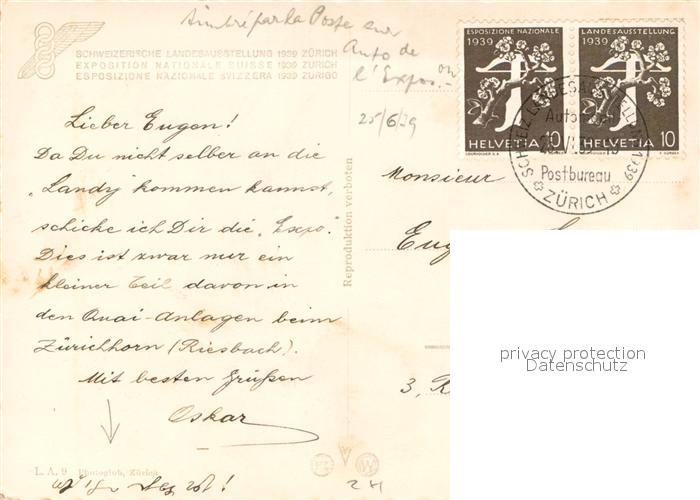 timbré par la Poste sur
Auto de
l'Expos.-on
SCHWEIZERISCHE LANDESAUSSTELLUNG 1939 ZÜRICH
EXPOSITION NATIONALE SUISSE 1939 ZURICH
ESPOSIZIONE NAZIONALE SVIZZERA 1939 ZURIGO
25/6/39
ESPOSIZIONE NAZIONALE
1939
HELVETIA 10
COURVOISIER S.A.
LANDESAUSSTELLUNG
1939
HELVETIA 10
SCHWEIZ. LANDESAUSSTELLUNG 1939
Postbureau
ZÜRICH
Lieber Eugen!
Da Du nicht selber an die
"Landy" kommen kannst,
schicke ich Dir die "Expo."
Dies ist zwar nur ein
kleiner Teil davon in
den Quai-Anlagen beim
Zürichhorn (Riesbach).
Mit besten Grüßen
Oskar
Reproduktion verboten
Monsieur
Eug
3, R
privacy protection
Datenschutz
L. A. 9 Photoglob, Zürich
24